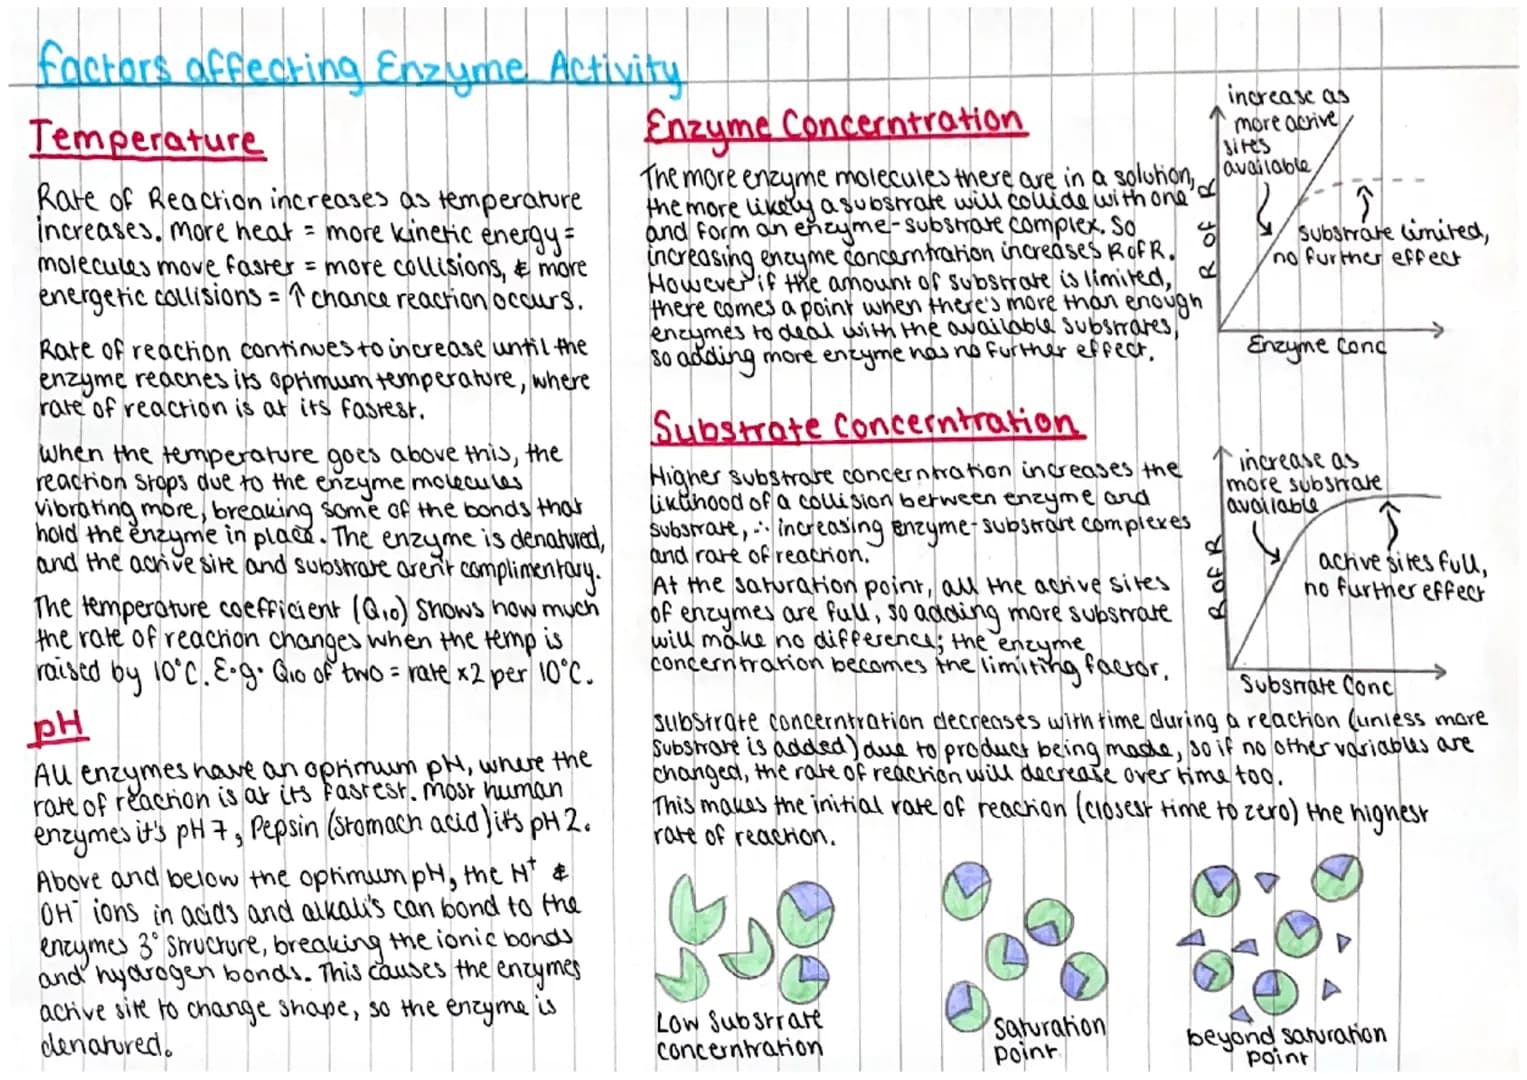 Factors affecting Enzyme Activity
Temperature
Rate of Reaction increases as temperature
increases. More heat = more kinetic energy =
molecules move faster = more collisions, & more
energetic collisions = ↑ chance reaction occurs.
Rate of reaction continues to increase until the
enzyme reaches its optimum temperature, where
rate of reaction is at its fastest.
When the temperature goes above this, the
reaction stops due to the enzyme molecules
vibrating more, breaking some of the bonds that
hold the enzyme in place. The enzyme is denatured,
and the active site and substrate aren't complimentary.
The temperature coefficient (Q10) shows how much
the rate of reaction changes when the temp is
raised by 10°C. E.g. Q10 of two = rate x2 per 10°C.
pH
All enzymes have an optimum pH, where the
rate of reaction is at its fastest. Most human
enzymes it's pH 7, Pepsin (stomach acid) it's pH 2.
Above and below the optimum pH, the H+ &
OH- ions in acids and alkali's can bond to the
enzymes 3° structure, breaking the ionic bonds
and hydrogen bonds. This causes the enzymes
active site to change shape, so the enzyme is
denatured.
Enzyme Concerntration
The more enzyme molecules there are in a solution,
the more likely a substrate will collide with one
and form an enzyme-substrate complex. So
increasing enzyme concerntration increases R of R.
However if the amount of substrate is limited,
there comes a point when there's more than enough
enzymes to deal with the available substrates,
so adding more enzyme has no further effect.
increase as
more active
sites
available
substrate limited,
no further effect
R of R
Enzyme Conc
Substrate Concerntration
Higher substrate concerntration increases the
liklihood of a collision between enzyme and
substrate, ∴ increasing enzyme-substrate complexes
and rate of reaction.
At the saturation point, all the active sites
of enzymes are full, so adding more substrate
will make no difference; the enzyme
concerntration becomes the limiting factor.
increase as
more substrate
available
active sites full,
no further effect
R of R
Substrate Conc
substrate concerntration decreases with time during a reaction (unless more
substrate is added) due to product being made, so if no other variables are
changed, the rate of reaction will decrease over time too.
This makes the initial rate of reaction (closest time to zero) the highest
rate of reaction.
Low Substrate
concerntration
Saturation
point
beyond saturation
point